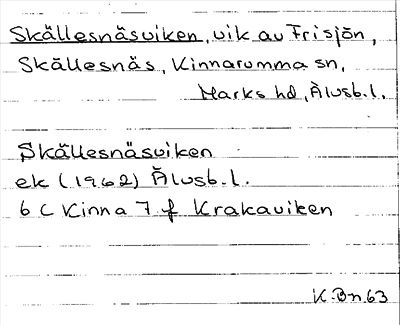 Skällesnäsviken, vik av Frisjön,
Skällesnäs, Kinnarumma sn,
Marks hd, Älvsb.l.
Skällesnäsviken
ek (1962) Älvsb.l.
6 C Kinna 7 f Krakaviken
K.Dn.63